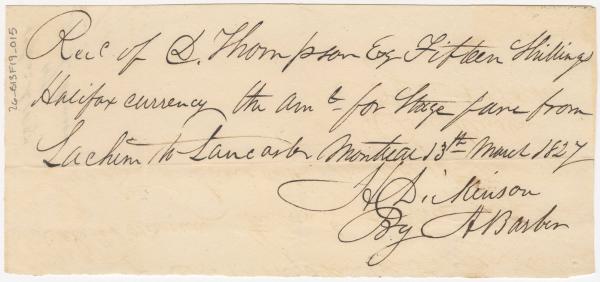 Recd of D. Thompson Esq Fifteen Shillings
Halifax currency the amt for Stage fare from
Lachine to Lancaster Montreal 13th March 1827
H Dickinson
By A Barber
26-B13F19-015